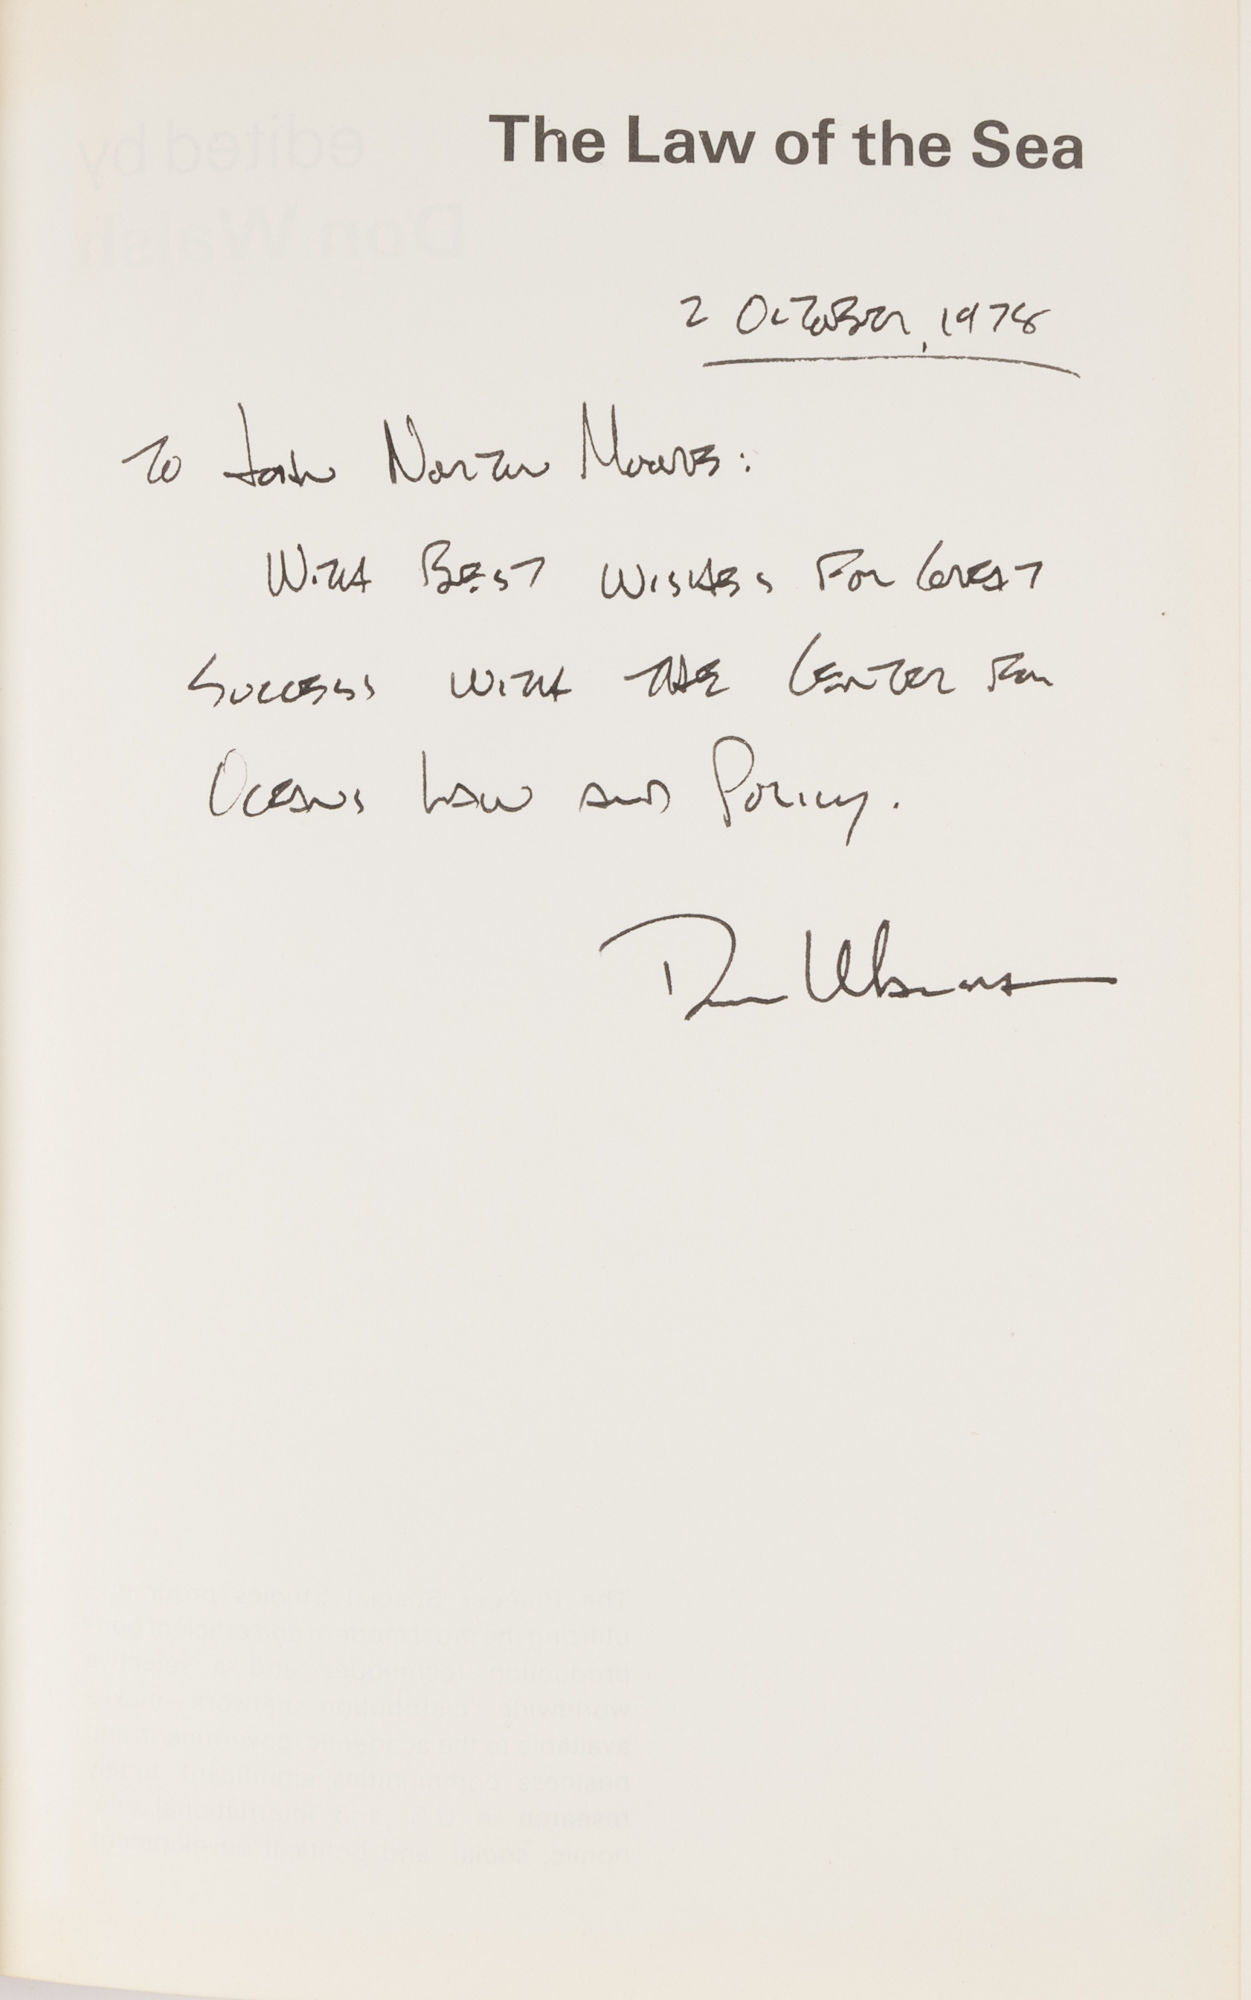 The Law of the Sea
2 October, 1978
To John Norton Moore:
With Best Wishes For Great
Success with the Center For
Oceans Law and Policy.
Don Walsh
edited by
Don Walsh